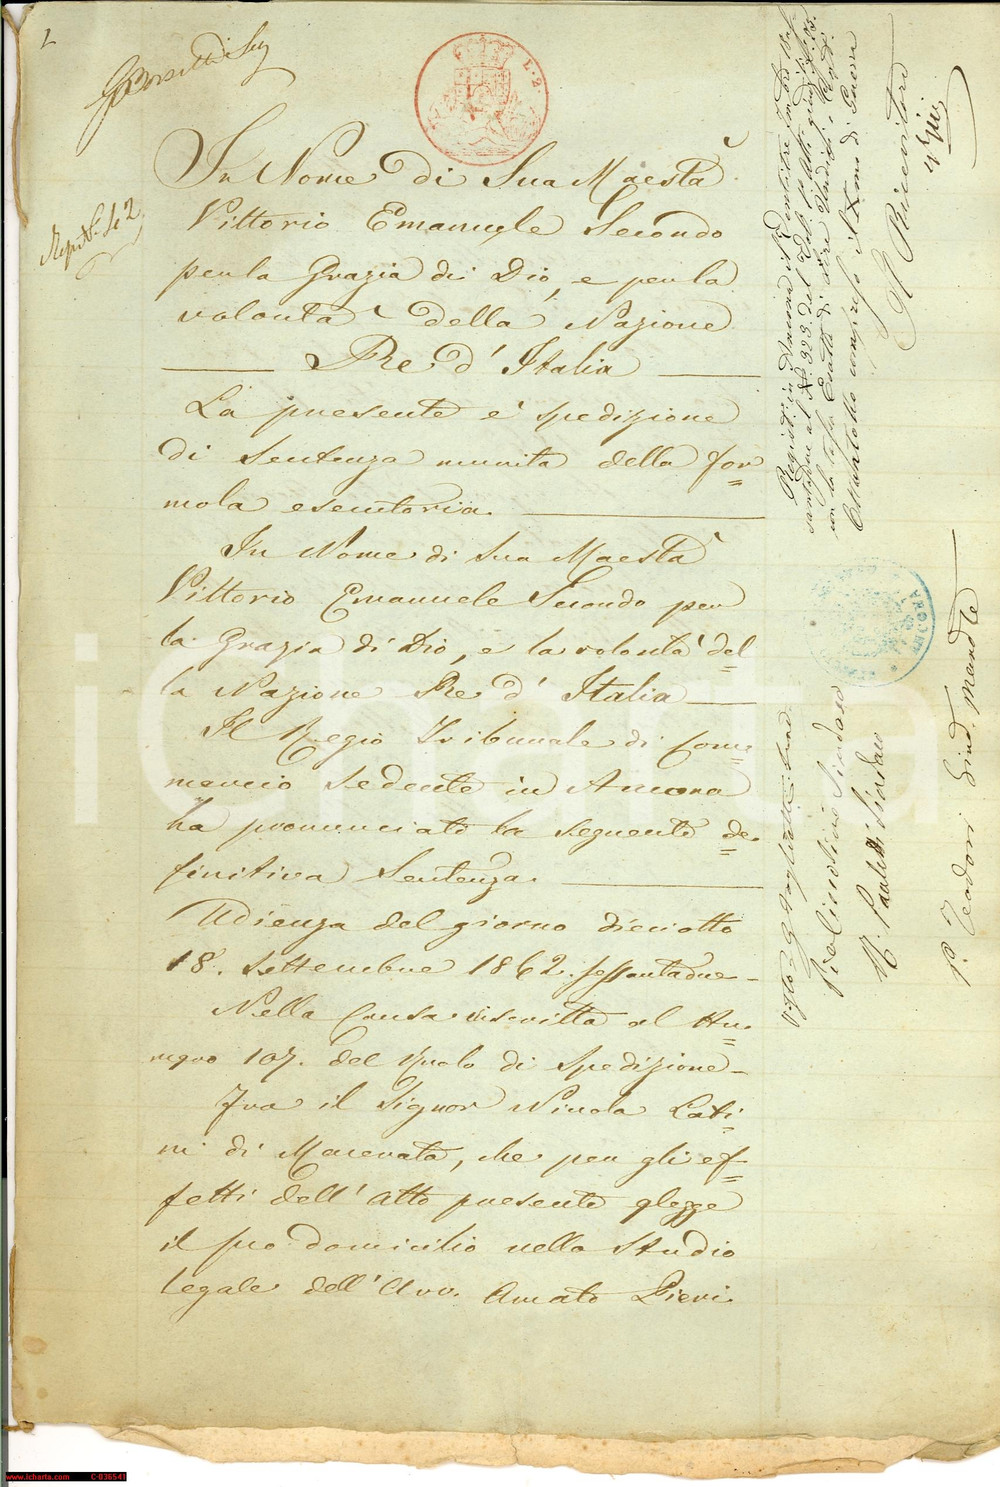 1
L. 2.
In Nome di Sua Maestà
Vittorio Emanuele Secondo
per la Grazia di Dio, e per la
volontà della Nazione
Re d' Italia
La presente e' spedizione
di Sentenza munita della for=
mola esecutoria.
In Nome di Sua Maestà
Vittorio Emanuele Secondo per
la Grazia di Dio, e la volontà del=
la Nazione Re d' Italia
Il Regio Tribunale di Com=
mercio Sedente in Ancona
ha pronunciato la seguente de=
finitiva Sentenza.
Udienza del giorno dieciotto
18. Settembre 1862. sessantadue
Nella Causa iscritta al Nu=
mero 107. del Ruolo di Spedizione
Fra il Signor Nicola Lati=
ni di Macerata, che per gli ef=
fetti dell' atto presente elegge
il suo domicilio nello Studio
legale dell' Avv. Amato Pieri
Registr. in Ancona
al N. 323 del
con la tassa
compreso il Xmo di Guerra
Il Ricevitore
Visto
Sindaco
Sindaco
iCharta
www.icharta.com C-036541